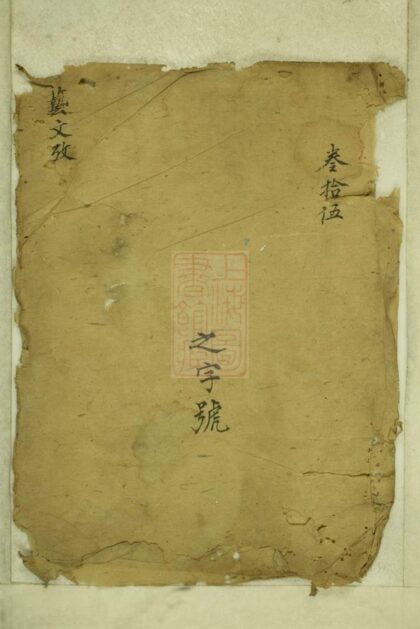 叁拾伍
之字號
藝文攷
上海圖書館藏